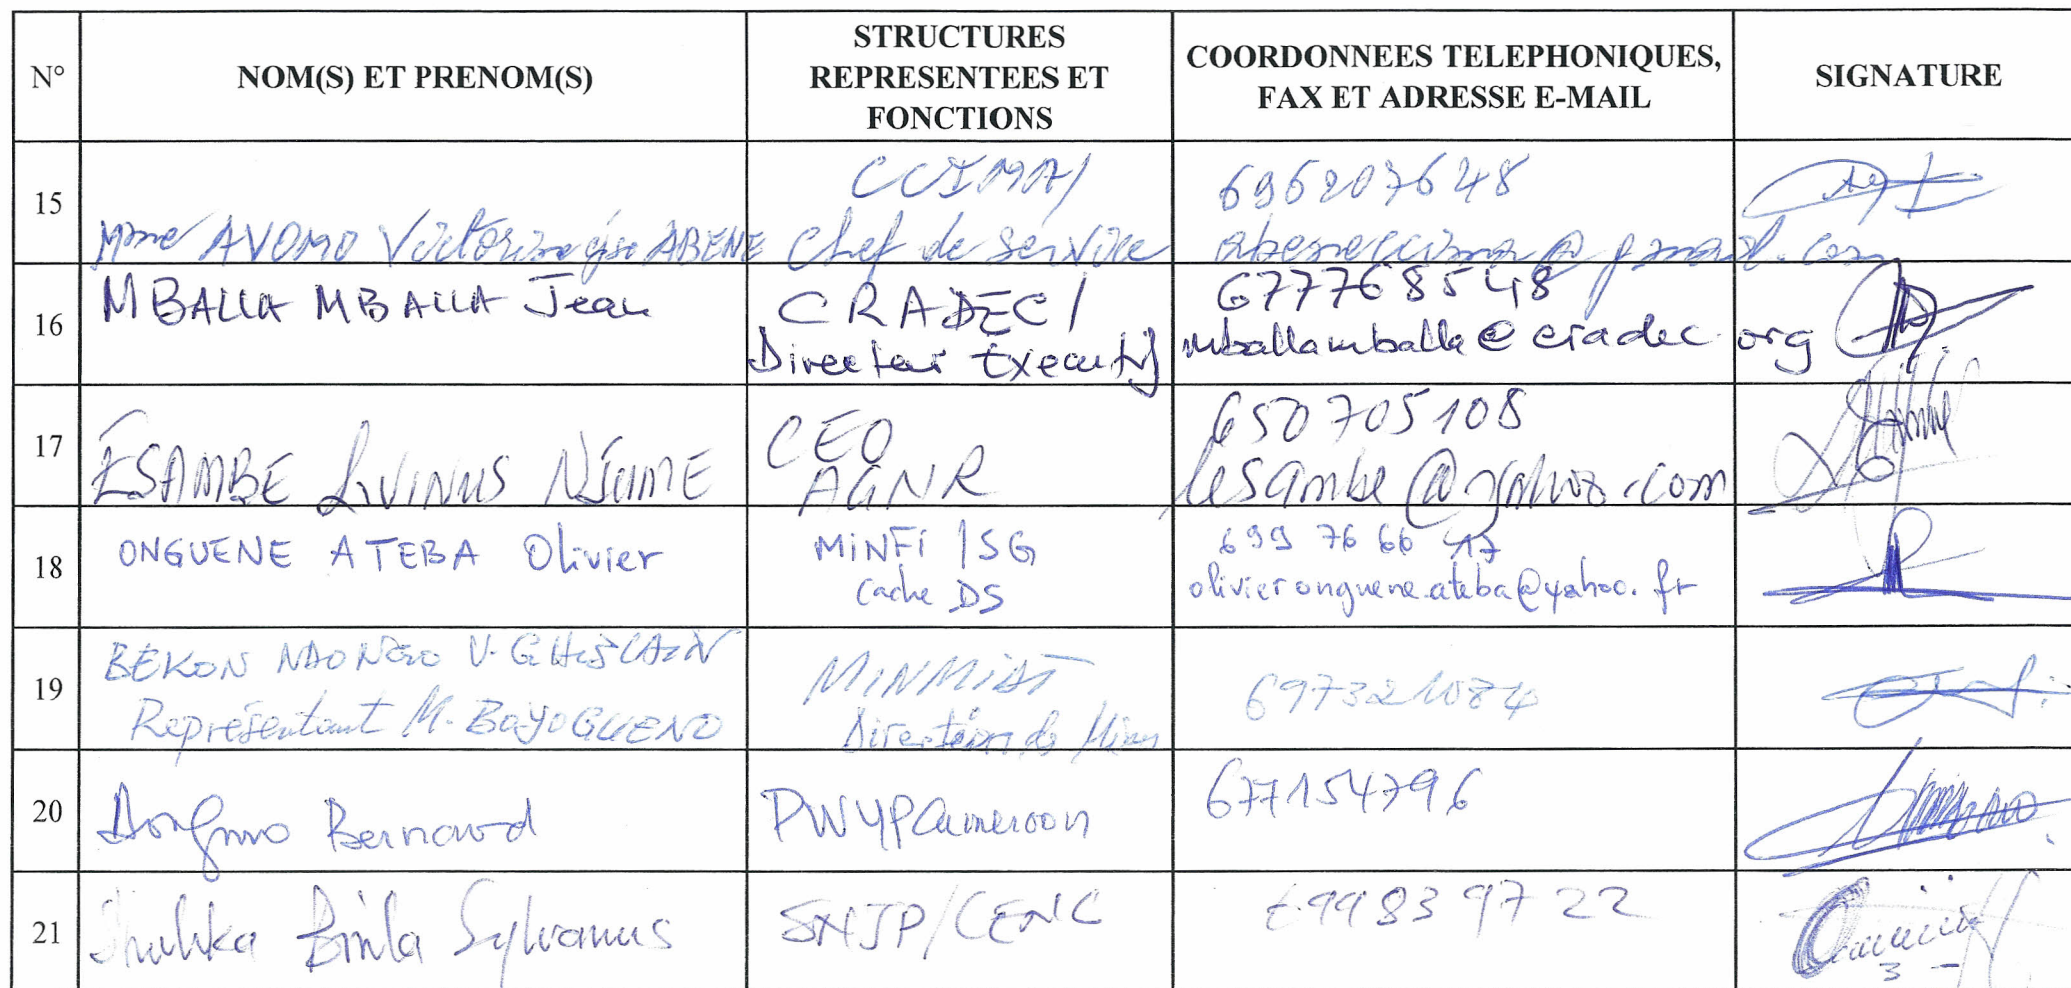 N°
NOM(S) ET PRENOM(S)
STRUCTURES
REPRESENTEES ET
FONCTIONS
COORDONNEES TELEPHONIQUES,
FAX ET ADRESSE E-MAIL
SIGNATURE
15
Mme AVOMO Victorine épse ABENE
CCIMA/
Chef de service
696207648
abeneccima@gmail.com
16
MBALLA MBALLA Jean
CRADEC/
Directeur Executif
677768548
mballamballa@cradec.org
17
ESAMBE LIVINUS NJUME
CEO
AGNR
650705108
lesambe@yahoo.com
18
ONGUENE ATEBA Olivier
MINFI/SG
Cadre DS
699 76 66 47
olivieronguene.ateba@yahoo.fr
19
BEKON NDONGO V. GHISLAIN
Représentant M. BOYOGUENO
MINMIDT
Direction des Mines
697321084
20
Dongmo Bernard
PWYP Cameroon
677154796
21
Sylvanus
SNJP/CENC
699839722